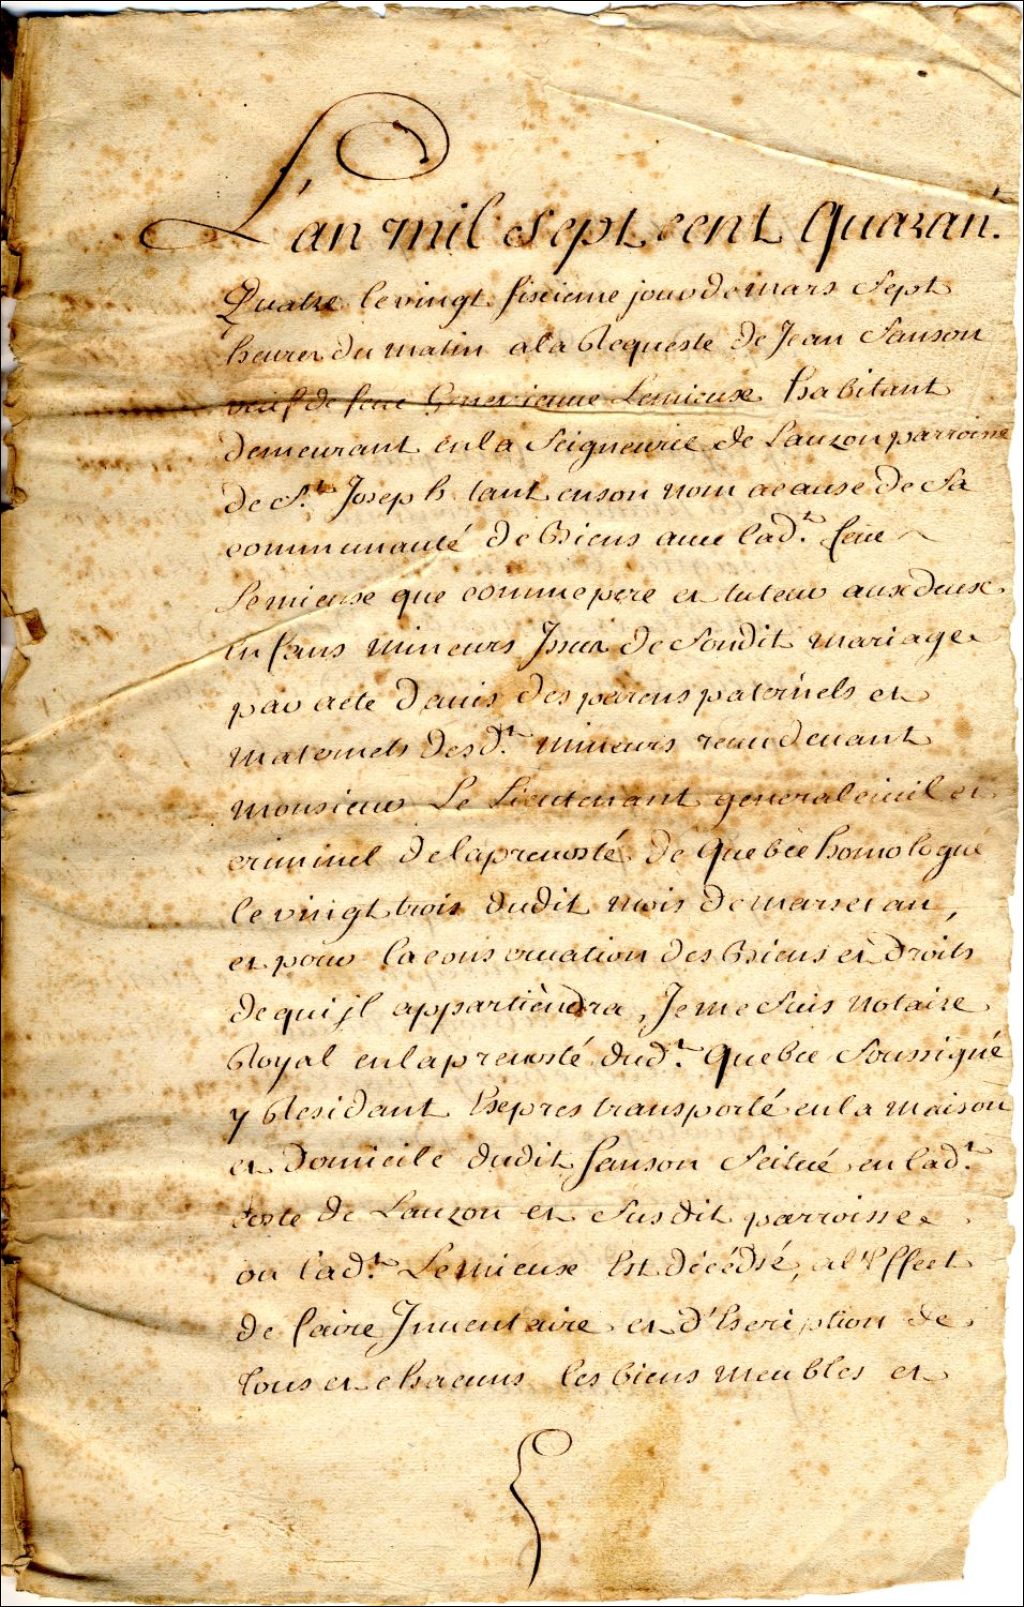 L'an mil sept cent Quaran.
Quatre le vingt sixieme jour de mars Sept
heures du matin a la Requeste de Jean Sanson
veuf de feue Genevienne Lemieux habitant
demeurant en la Seigneurie de Lauzon parroisse
de St. Joseph tant en son nom acause de Sa
communauté de Biens avec lad.te feue
Lemieux que comme pere et tuteur aux deux
Enfans mineurs Issus de Sondit mariage
par acte d'avis des parens paternels et
maternels desd.ts mineurs receu devant
Monsieur Le Lieutenant general civil et
criminel de la prevosté de Quebec homologué
le vingt trois dudit mois de mars et an,
et pour la conservation des Biens et droits
de qui jl appartièndra, Je me Suis Notaire
Royal en la prevosté dud.t Quebec Soussigné
y Residant Expres transporté en la maison
et Domicile dudit Sanson Scitué en lad.te
Coste de Lauzon et Susdit parroisse
ou lad.te Lemieux Est décédée, a l'Effect
de faire Jnventaire et d'Escription de
tous et chacuns les biens meubles et